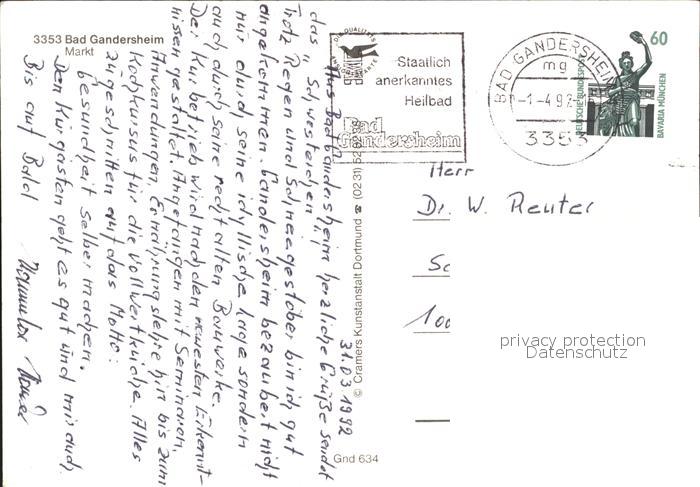 3353 Bad Gandersheim
Markt
31.03.1992
Aus Bad Gandersheim herzliche Grüße sendet
das „Schwesterchen“.
Trotz Regen und Schneegestöber bin ich gut
angekommen. Gandersheim bezaubert nicht
nur durch seine idyllische Lage sondern
auch durch seine recht alten Bauwerke.
Der Kurbetrieb wird nach den neuesten Erkennt-
nissen gestaltet. Angefangen mit Seminaren,
Anwendungen, Ernährungslehre hin bis zum
Kochkursus für die Vollwertküche. Alles
zugeschnitten auf das Motto:
Gesundheit selber machen.
Den Kurgästen geht es gut und mir auch.
Bis auf Bald
© Cramers Kunstanstalt Dortmund (0231)
Gnd 634
Staatlich
anerkanntes
Heilbad
Bad
Gandersheim
BAD GANDERSHEIM
mg
-1-4.92
3353
DEUTSCHE BUNDESPOST
60
BAVARIA MÜNCHEN
Herr
Dr. W. Reuter
privacy protection
Datenschutz